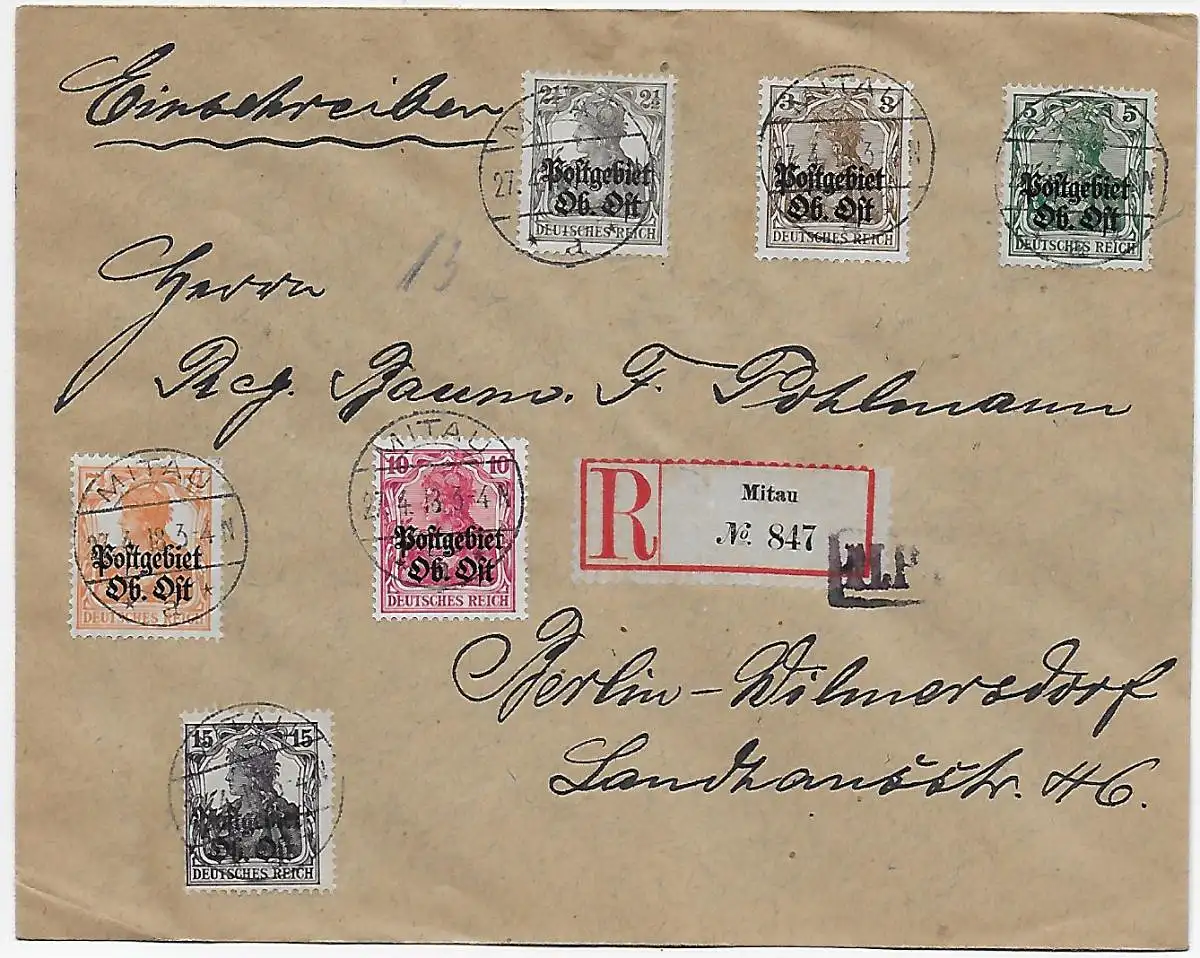 Einschreiben
2½ 2½
Postgebiet
Ob. Ost
DEUTSCHES REICH
3 3
Postgebiet
Ob. Ost
DEUTSCHES REICH
5 5
Postgebiet
Ob. Ost
DEUTSCHES REICH
13
Herrn
Reg. Baum. F. Pohlmann
MITAU
27.4.18.3-4 N
Postgebiet
Ob. Ost
* a *
DEUTSCHES REICH
MITAU
10 10
27.4.18.3-4 N
Postgebiet
Ob. Ost
DEUTSCHES REICH
R
Mitau
No. 847
Berlin-Wilmersdorf
Landhausstr. 46.
15 15
Postgebiet
Ob. Ost
DEUTSCHES REICH